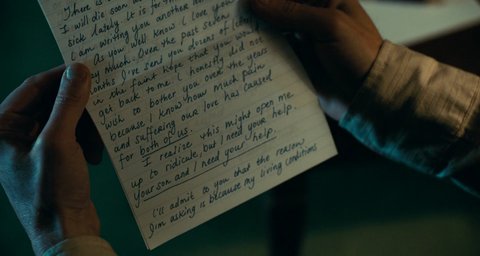 There is
I will die soon
sick lately. It is for th
I am writing you another
As you well know I love you
very much. Over the past seven
months I've sent you dozens of letters
in the faint hope that you would
get back to me. I honestly did not
wish to bother you over the years
because I know how much pain
and suffering our love has caused
for both of us.
I realize this might open me
up to ridicule, but I need your help.
Your son and I need your help.
I'll admit to you that the reason
I'm asking is because my living conditions